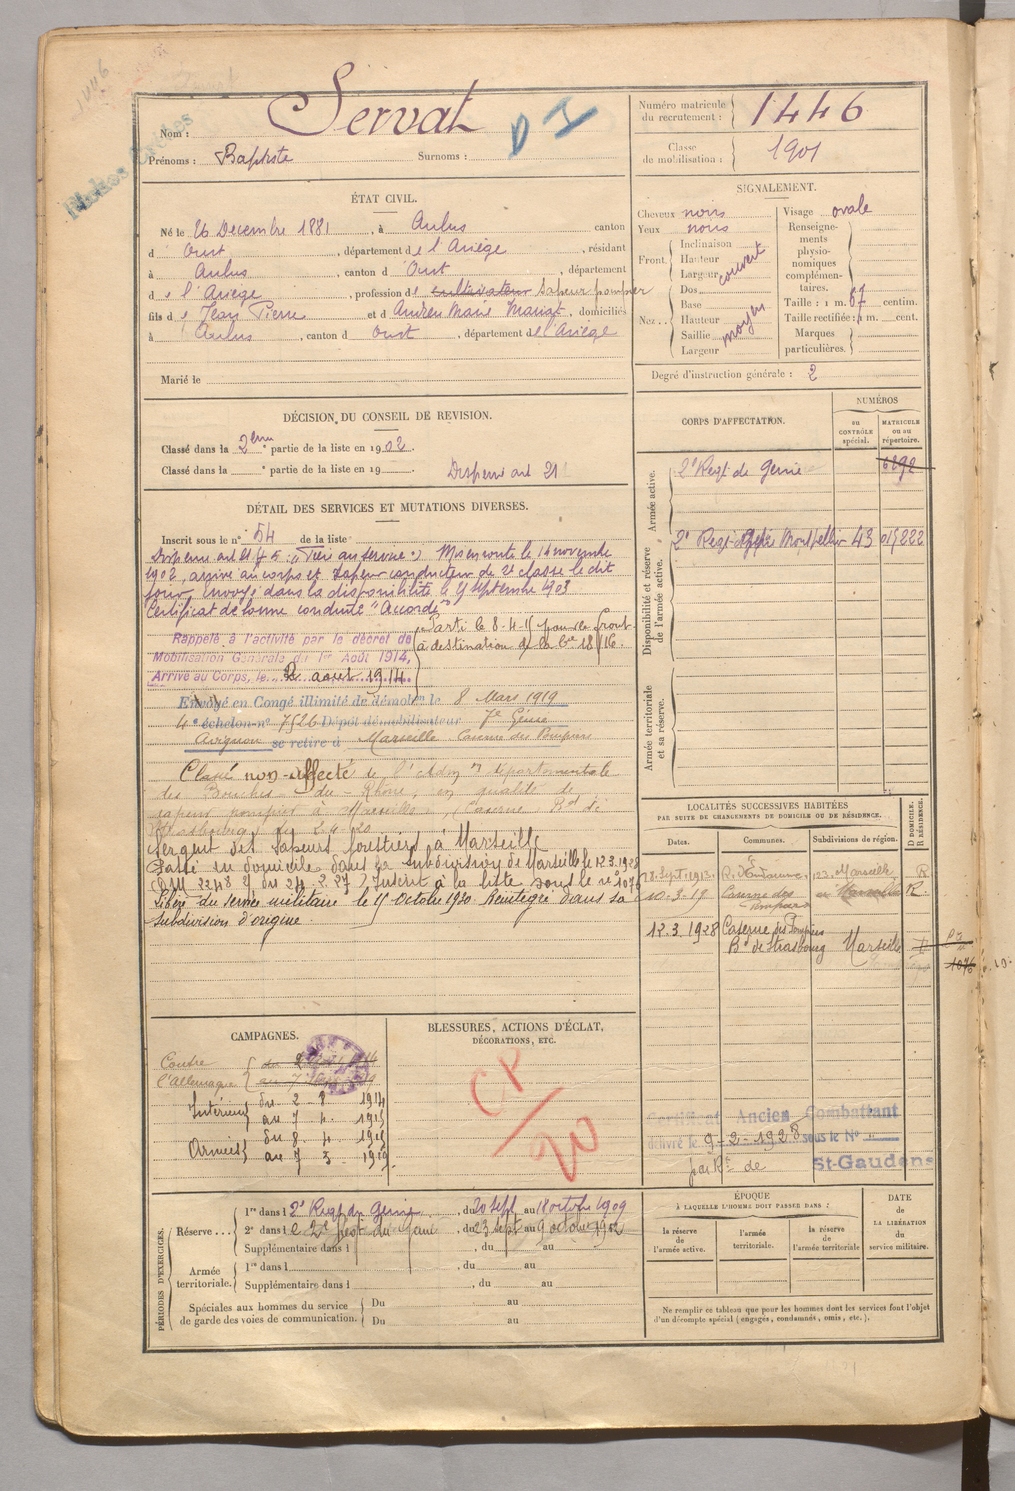 1446
Fiches
Nom : Servat
D I
Prénoms : Baptiste Surnoms :
Numéro matricule du recrutement : 1446
Classe de mobilisation : 1901
ÉTAT CIVIL.
Né le 26 Decembre 1881, à Aulus canton
d Oust, département de l'Ariège, résidant
à Aulus, canton d Oust, département
de l'Ariege, profession de cultivateur Sapeur pompier
fils de Jean Pierre et d Andrieu Marie, domiciliés
à Aulus, canton d Oust, département de l'Ariège
Marié le
SIGNALEMENT.
Cheveux noirs
Yeux noirs
Front. Inclinaison
Hauteur
Largeur couvert
Nez. Dos
Base
Hauteur
Saillie moyen
Largeur
Visage ovale
Renseignements physionomiques complémentaires.
Taille : 1 m. 67 centim.
Taille rectifiée : 1 m. cent.
Marques particulières.
Degré d'instruction générale : 2
DÉCISION DU CONSEIL DE REVISION.
Classé dans la 2ème partie de la liste en 1902.
Classé dans la e partie de la liste en 19
Dispensé art 21
CORPS D'AFFECTATION.
NUMÉROS
au CONTRÔLE spécial.
MATRICULE ou au répertoire.
Armée active.
2e Regt de Genie 6292
Disponibilité et réserve de l'armée active.
2e Regt Montpellier 43 015222
Armée territoriale et sa réserve.
DÉTAIL DES SERVICES ET MUTATIONS DIVERSES.
Inscrit sous le n° 54 de la liste
Dispensé art 21 "frère au service". Mis en route le 14 novembre
1902, arrivé au corps et sapeur conducteur de 2e classe le dit
jour, envoyé dans la disponibilité le 19 septembre 1903
Certificat de bonne conduite "Accordé"
Rappelé à l'activité par le décret de
Mobilisation Générale du 1er Août 1914,
Arrivé au Corps, le 2 aout 1914.
Parti le 8-4-15 pour le front
à destination de la Cie 18/16.
Envoyé en Congé illimité de démobon le 8 Mars 1919
4e échelon n° 7526 Dépôt démobilisateur 7e Génie
Avignon se retire à Marseille Caserne des Pompiers
Classé non-affecté de l'Admon départementale
des Bouches-du-Rhône, en qualité de
sapeur pompier à Marseille, (Caserne Bd de
Strasbourg) 2-4-20
Sergent des Sapeurs forestiers à Marseille
Passé au domicile dans la subdivision de Marseille le 12.3.1928
(DM 2248 du 24.2.27) Inscrit à la liste sous le n° 1076
Libéré du service militaire le 15 Octobre 1930. Réintégré dans sa
subdivision d'origine.
LOCALITÉS SUCCESSIVES HABITÉES
PAR SUITE DE CHANGEMENTS DE DOMICILE OU DE RÉSIDENCE.
Dates. Communes. Subdivisions de région. D. DOMICILE. R. RÉSIDENCE.
28 Sept. 1913. Marseille R
10-3-19 Caserne des Pompiers Marseille R.
12.3.1928 Caserne des Pompiers Bd de Strasbourg Marseille D
1076
CAMPAGNES.
Contre l'Allemagne
Intérieur du 2 8 1914
au 7 4. 1915
Armées du 8. 4 1915
au 7 3 1919.
BLESSURES, ACTIONS D'ÉCLAT,
DÉCORATIONS, ETC.
CP/20
Certificat Ancien Combattant
délivré le 9-2-1928 sous le N°
par Rt de St-Gaudens
PÉRIODES D'EXERCICES.
Réserve... 1re dans l 2e Regt du Genie, du 20 sept au 18 octobre 1909
2e dans l e 2e Regt du Genie, du 23 sept au 9 octobre 1912
Supplémentaire dans l, du au
Armée territoriale. 1re dans l, du au
Supplémentaire dans l, du au
Spéciales aux hommes du service de garde des voies de communication. Du au
Du au
ÉPOQUE
À LAQUELLE L'HOMME DOIT PASSER DANS :
la réserve de l'armée active.
l'armée territoriale.
la réserve de l'armée territoriale
DATE de LA LIBÉRATION du service militaire.
Ne remplir ce tableau que pour les hommes dont les services font l'objet
d'un décompte spécial (engagés, condamnés, omis, etc.).